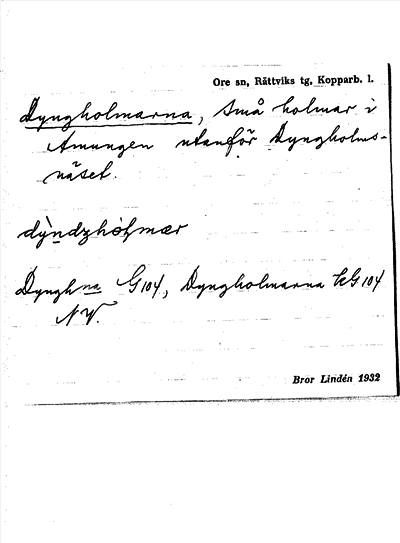 Ore sn, Rättviks tg, Kopparb. l.
Dyngholmarna, små holmar i
Amungen utanför Dyngholms-
näset.
dỳndzhòɫmær
Dynghna G104, Dyngholmarna kG104
NV.
Bror Lindén 1932